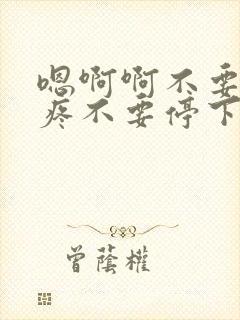 嗯啊啊不要
疼不要停下
曾荫權